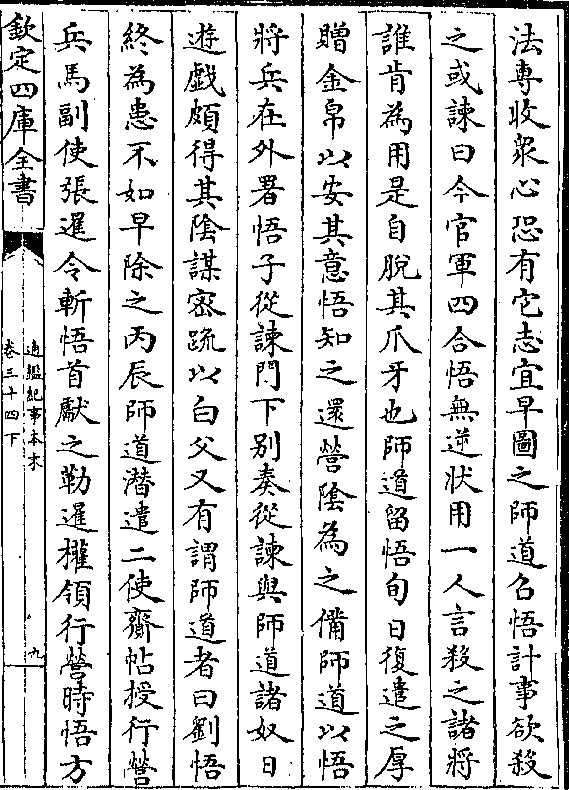 法專收衆心恐有它志宜早圖之師道召悟計事欲殺
之或諫曰今官軍四合悟無逆狀用一人言殺之諸將
誰肯為用是自脫其爪牙也師道留悟旬日復遣之厚
贈金帛以安其意悟知之還營陰為之備師道以悟
將兵在外署悟子從諫門下别奏從諫與師道諸奴日
遊戱頗得其陰謀密疏以白父又有謂師道者曰劉悟
終為患不如早除之丙辰師道潛遣二使齎帖授行營
兵馬副使張暹令斬悟首獻之勒暹權領行營時悟方
欽定四庫全書
通鑑紀事本末
卷三十四下
九